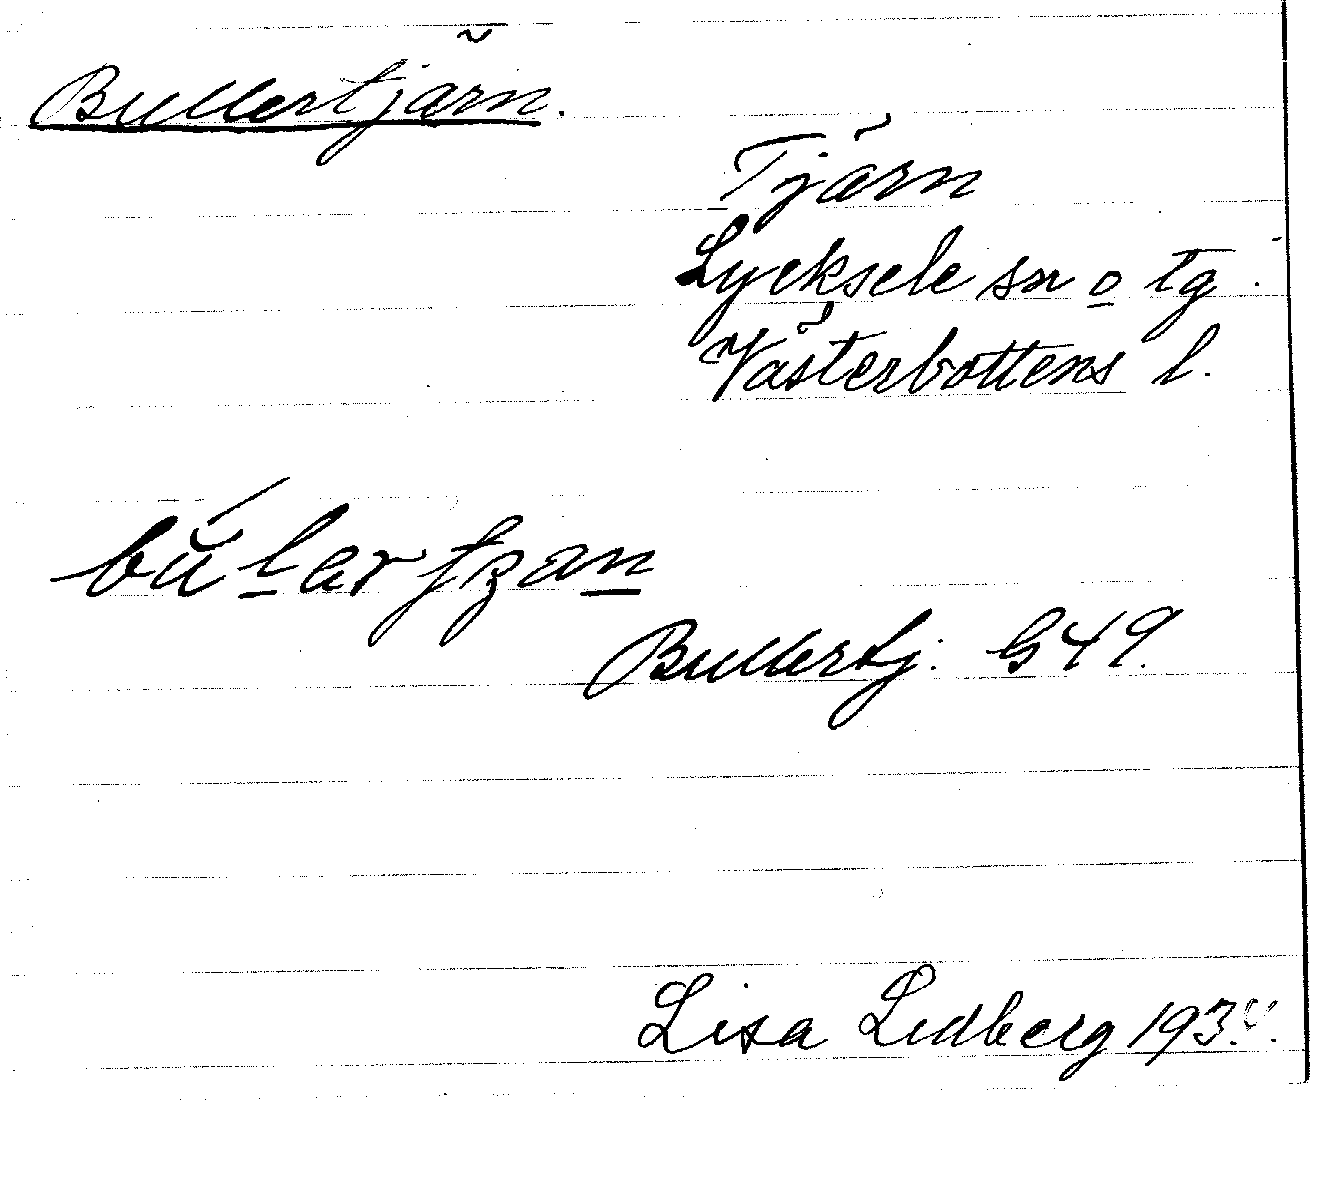 Bullertjärn.
Tjärn
Lycksele sn o tg.
Västerbottens l.
Bullertj. G49.
Lisa Lidberg